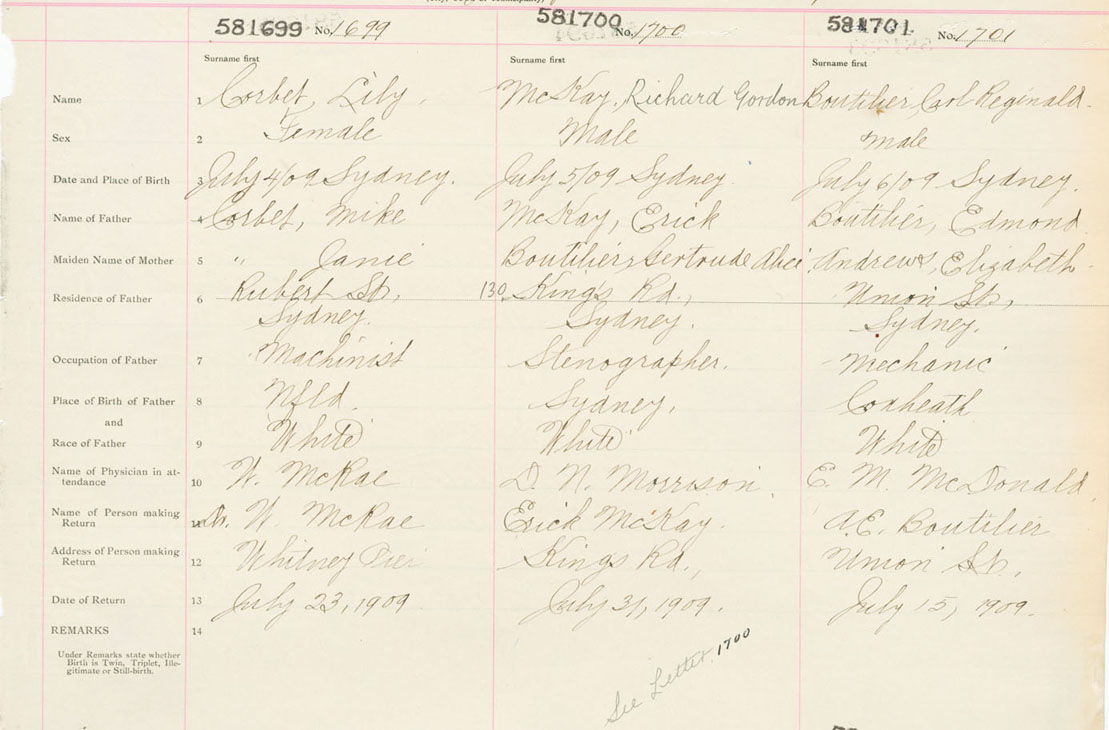 581699 No. 1699 581700 No. 1700 581701 No. 1701
Surname first Surname first Surname first
Name 1 Corbet, Lily. McKay, Richard Gordon Boutilier, Carl Reginald.
Sex 2 Female Male Male
Date and Place of Birth 3 July 4/09 Sydney. July 5/09 Sydney. July 6/09 Sydney.
Name of Father 4 Corbet, Mike McKay, Erick Boutilier, Edmond.
Maiden Name of Mother 5 " Janie Boutilier, Gertrude Alice Andrews, Elizabeth
Residence of Father 6 Rubert St., 130 Kings Rd., Union St.,
Sydney. Sydney. Sydney.
Occupation of Father 7 Machinist Stenographer. Mechanic
Place of Birth of Father 8 Nfld. Sydney. Coxheath
and
Race of Father 9 White White White
Name of Physician in at-
tendance 10 W. McRae D. N. Morrison. E. M. McDonald.
Name of Person making
Return 11 Dr. W. McRae Erick McKay. A.E. Boutilier
Address of Person making
Return 12 Whitney Pier Kings Rd., Union St.,
Date of Return 13 July 23, 1909. July 31, 1909. July 15, 1909.
REMARKS 14
Under Remarks state whether
Birth is Twin, Triplet, Ille-
gitimate or Still-birth.
See Letter 1700